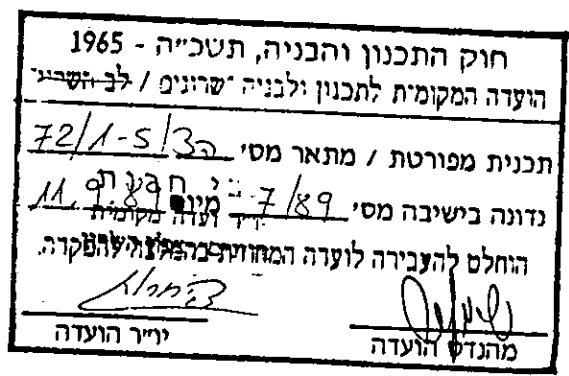 חוק התכנון והבניה, תשכ״ה - 1965
הועדה המקומית לתכנון ולבניה "שרונים" / לב השרון
תכנית מפורטת / מתאר מס׳ הצ/3/1-5/72
נדונה בישיבה מס׳ 7/89 מיום 11.9.89
יו״ר ועדה מקומית
הוחלט להעבירה לועדה המחוזית בהמלצה להפקדה.
מהנדס הועדה יו״ר הועדה